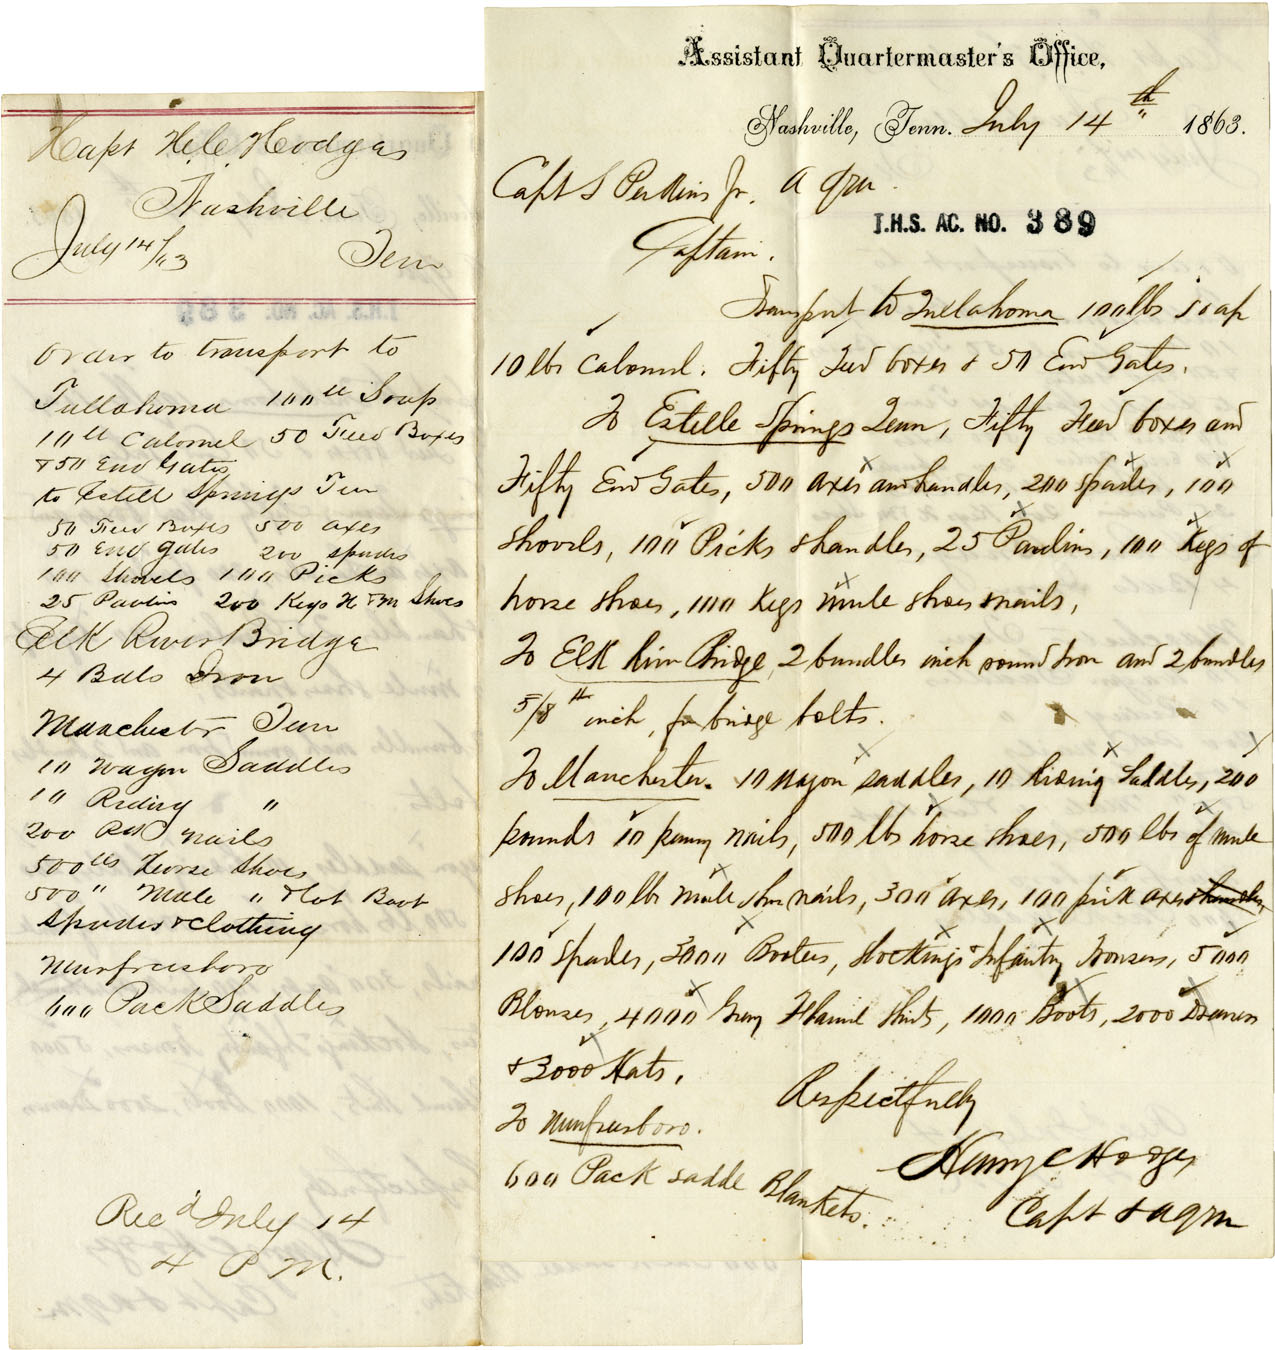 Capt H.C. Hodges
Nashville
July 14/63 Tenn
Order to transport to
Tullahoma 100 lb Soap
10 lb Calomel 50 Feed Boxes
& 50 End Gates
to Estell Springs Ten
50 Feed Boxes 500 axes
50 End gates 200 spades
100 Shovels 100 Picks
25 Paulins 200 Kegs H & M Shoes
Elk River Bridge
4 Bdls Iron
Manchester Tenn
10 Wagon Saddles
10 Riding "
200 nails
500 lbs Horse Shoes
500 " Mule " & lot Boot
Spades & Clothing
Murfreesboro
600 Pack Saddles
Rec'd July 14
4 P M.
Assistant Quartermaster's Office,
Nashville, Tenn. July 14th 1863.
Capt S Perkins Jr. A Qm.
T.H.S. AC. NO. 389
Captain.
Transport to Tullahoma 100 lbs soap
10 lbs Calomel. Fifty Feed boxes & 50 End Gates.
To Estelle Springs Tenn, Fifty Feed boxes and
Fifty End Gates, 500 axes and handles, 200 spades, 100
shovels, 100 Picks & handles, 25 Paulins, 100 Kegs of
horse shoes, 100 Kegs mule shoes & nails,
To Elk River Bridge, 2 bundles inch round Iron and 2 bundles
5/8th inch, for bridge bolts.
To Manchester. 10 wagon saddles, 10 Riding Saddles, 200
pounds 10 penny nails, 500 lbs horse shoes, 500 lbs of mule
shoes, 100 lbs mule shoe nails, 300 axes, 100 pick axes & handles,
100 spades, 3000 Bootees, stockings & Infantry Trousers, 5000
Blouses, 4000 Grey Flannel Shirts, 1000 Boots, 2000 Drawers
& 3000 Hats,
To Murfreesboro.
600 Pack saddle Blankets.
Respectfully
Henry C Hodges
Capt & aqm